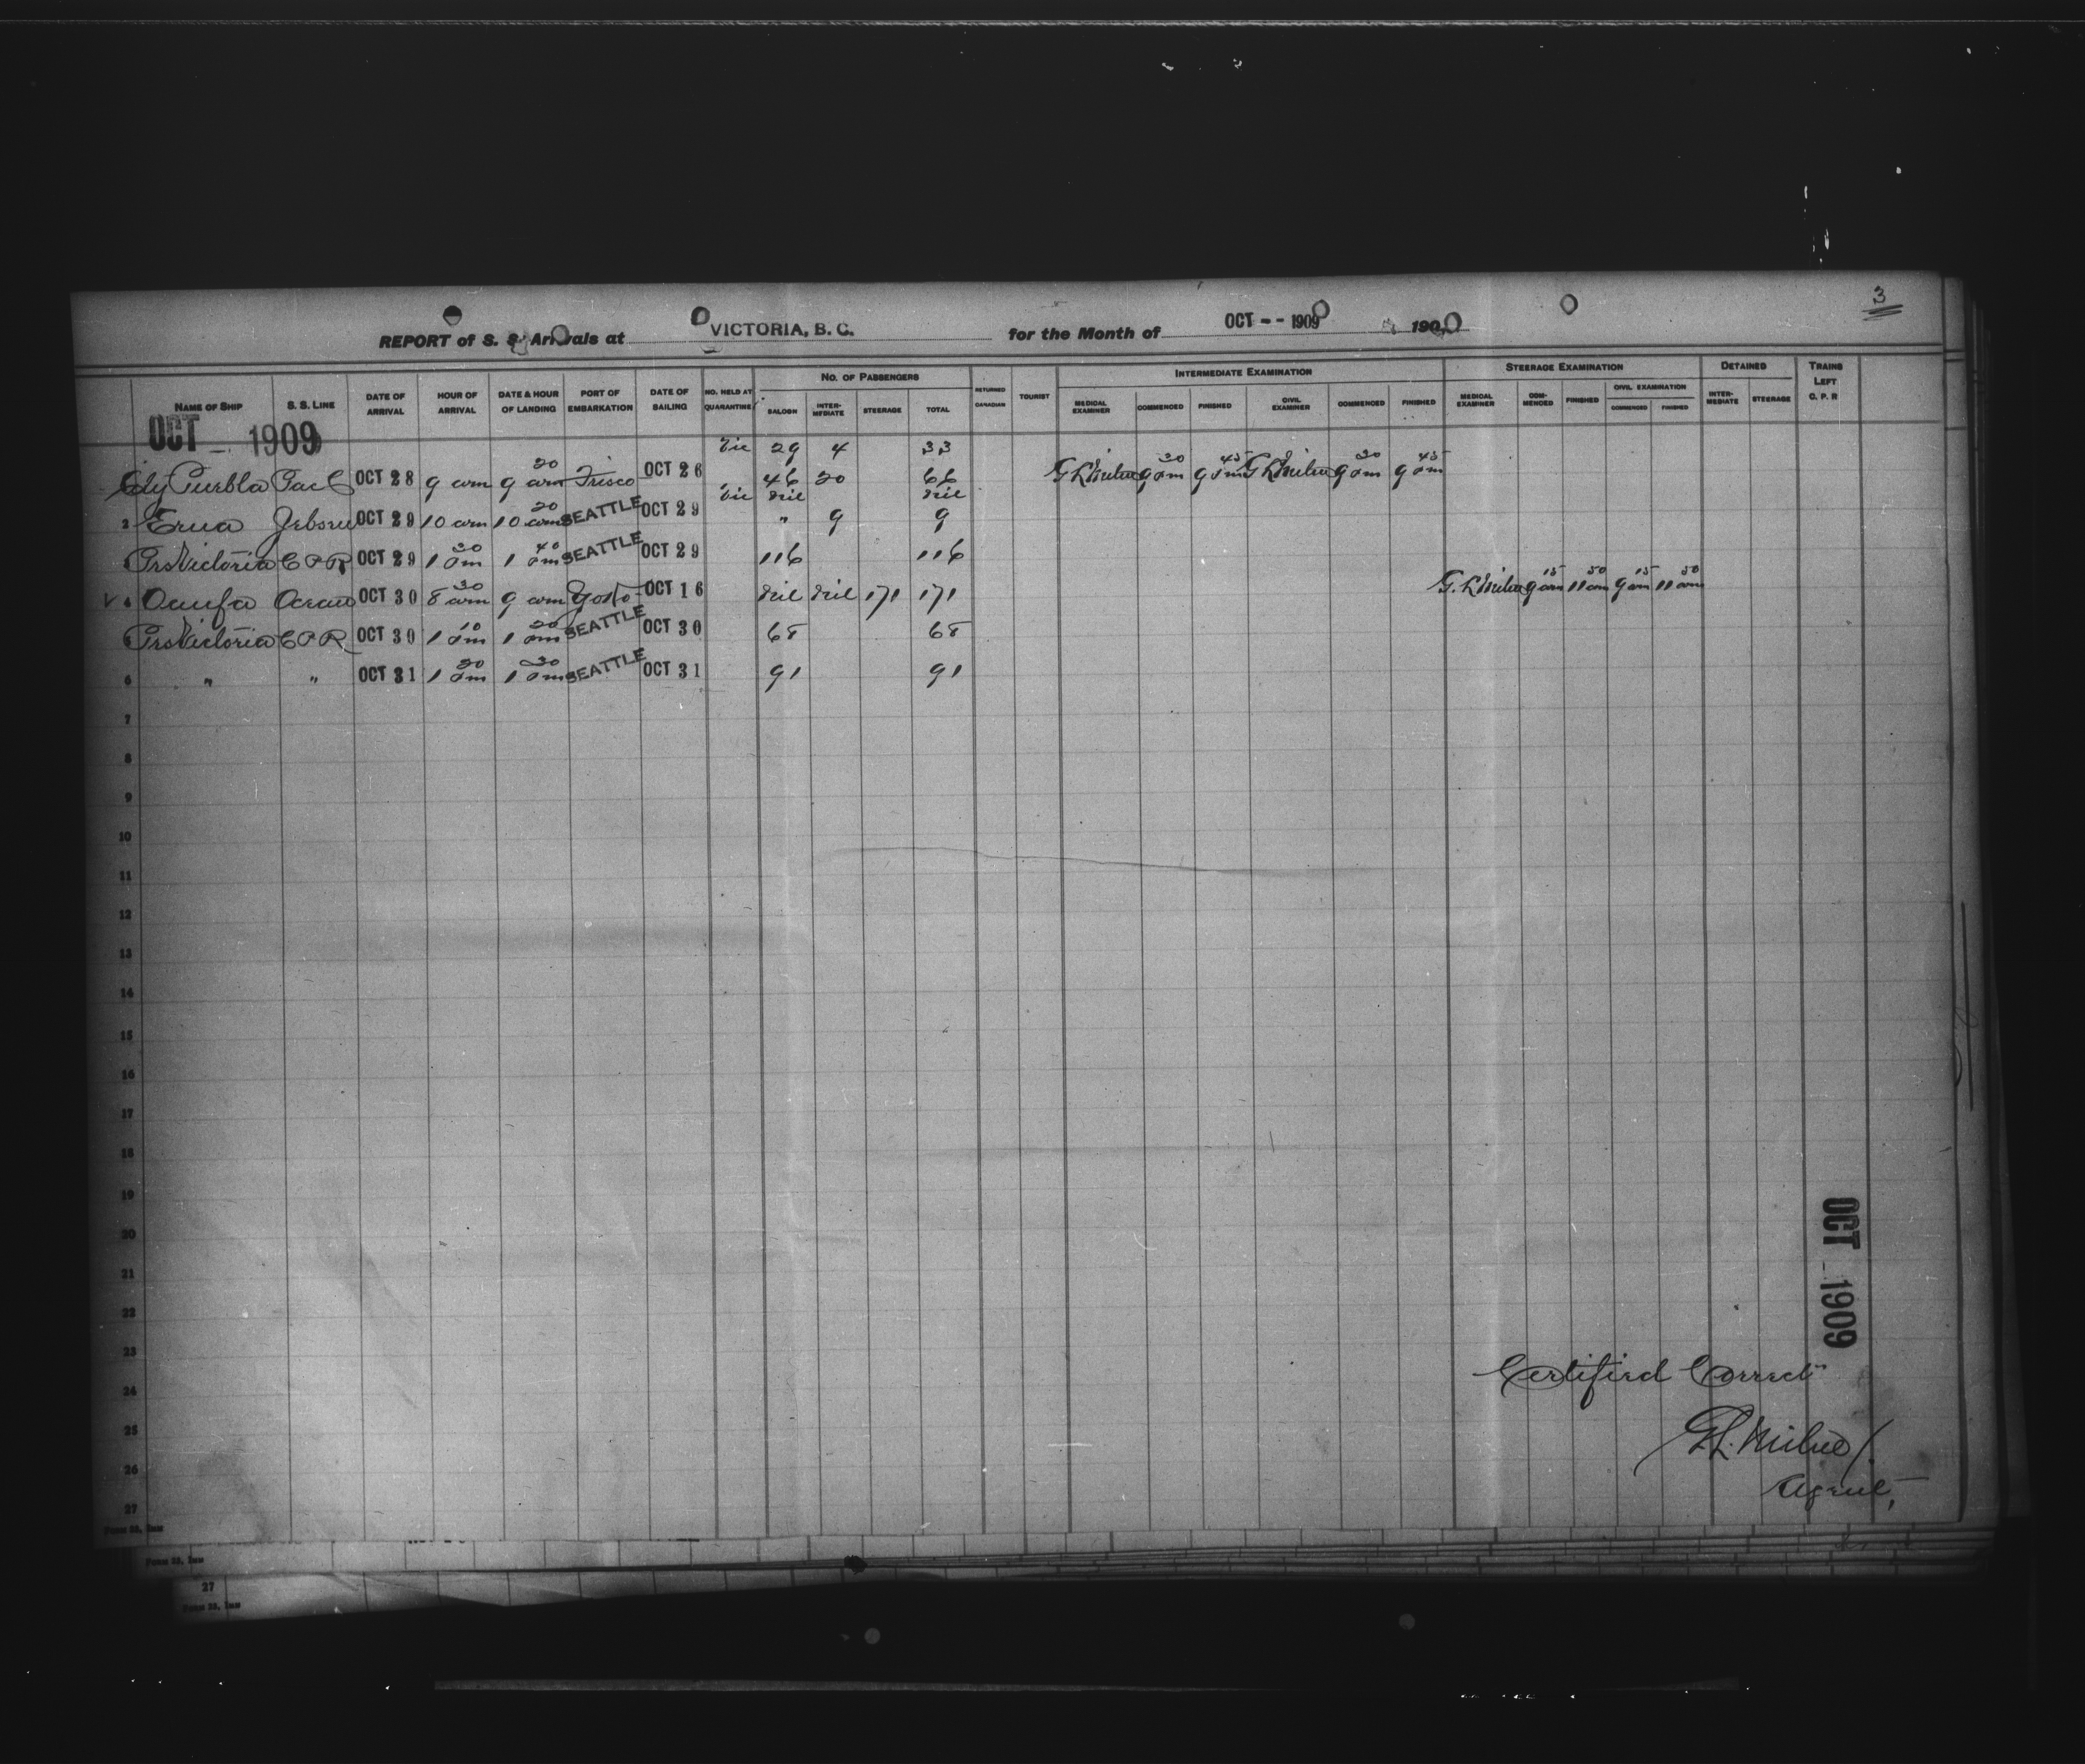 3
REPORT of S. S. Arrivals at VICTORIA, B. C. for the Month of OCT -- 1909 190
NAME OF SHIP S. S. LINE DATE OF ARRIVAL HOUR OF ARRIVAL DATE & HOUR OF LANDING PORT OF EMBARKATION DATE OF SAILING NO. HELD AT QUARANTINE NO. OF PASSENGERS SALOON INTER-MEDIATE STEERAGE TOTAL RETURNED CANADIAN TOURIST INTERMEDIATE EXAMINATION MEDICAL EXAMINER COMMENCED FINISHED CIVIL EXAMINER COMMENCED FINISHED STEERAGE EXAMINATION MEDICAL EXAMINER COM-MENCED FINISHED CIVIL EXAMINATION COMMENCED FINISHED DETAINED INTER-MEDIATE STEERAGE TRAINS LEFT C. P. R
OCT - 1909
Vic 29 4 33
City Puebla Pac C OCT 28 9 am 9 20 am Frisco OCT 26 46 20 66 G L Milne 9 30 am 9 45 am G L Milne 9 30 am 9 45 am
Vic nil nil
2 Erna Jebsen OCT 29 10 am 10 20 am SEATTLE OCT 29 " 9 9
Prs Victoria C P R OCT 29 1 30 pm 1 40 pm SEATTLE OCT 29 116 116
4 Oanfa Ocean OCT 30 8 30 am 9 am Yoko OCT 16 nil nil 171 171 G. L Milne 9 15 am 11 50 am 9 15 am 11 50 am
Prs Victoria C P R OCT 30 1 10 pm 1 20 pm SEATTLE OCT 30 68 68
6 " " OCT 31 1 20 pm 1 30 pm SEATTLE OCT 31 91 91
7
8
9
10
11
12
13
14
15
16
17
18
19
20
21
22
23
24
25
26
27
OCT - 1909
Certified Correct
G. L. Milne
Agent,
FORM 33, IMM
FORM 33, IMM
27
FORM 33, IMM